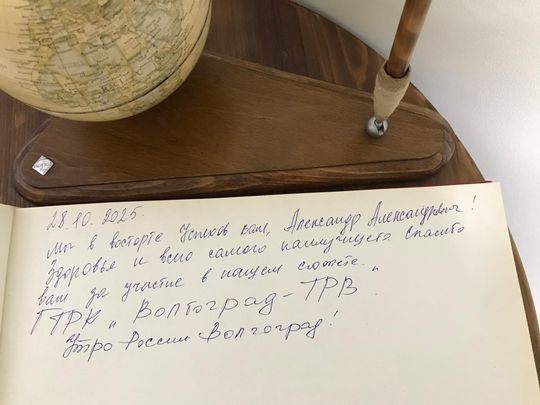 28.10.2025.
Мы в восторге Успехов вам, Александр Александрович!
Здоровья и всего самого наилучшего спасибо
вам за участие в нашем сюжете.
ГТРК "Волгоград-ТРВ"
Утро России Волгоград!